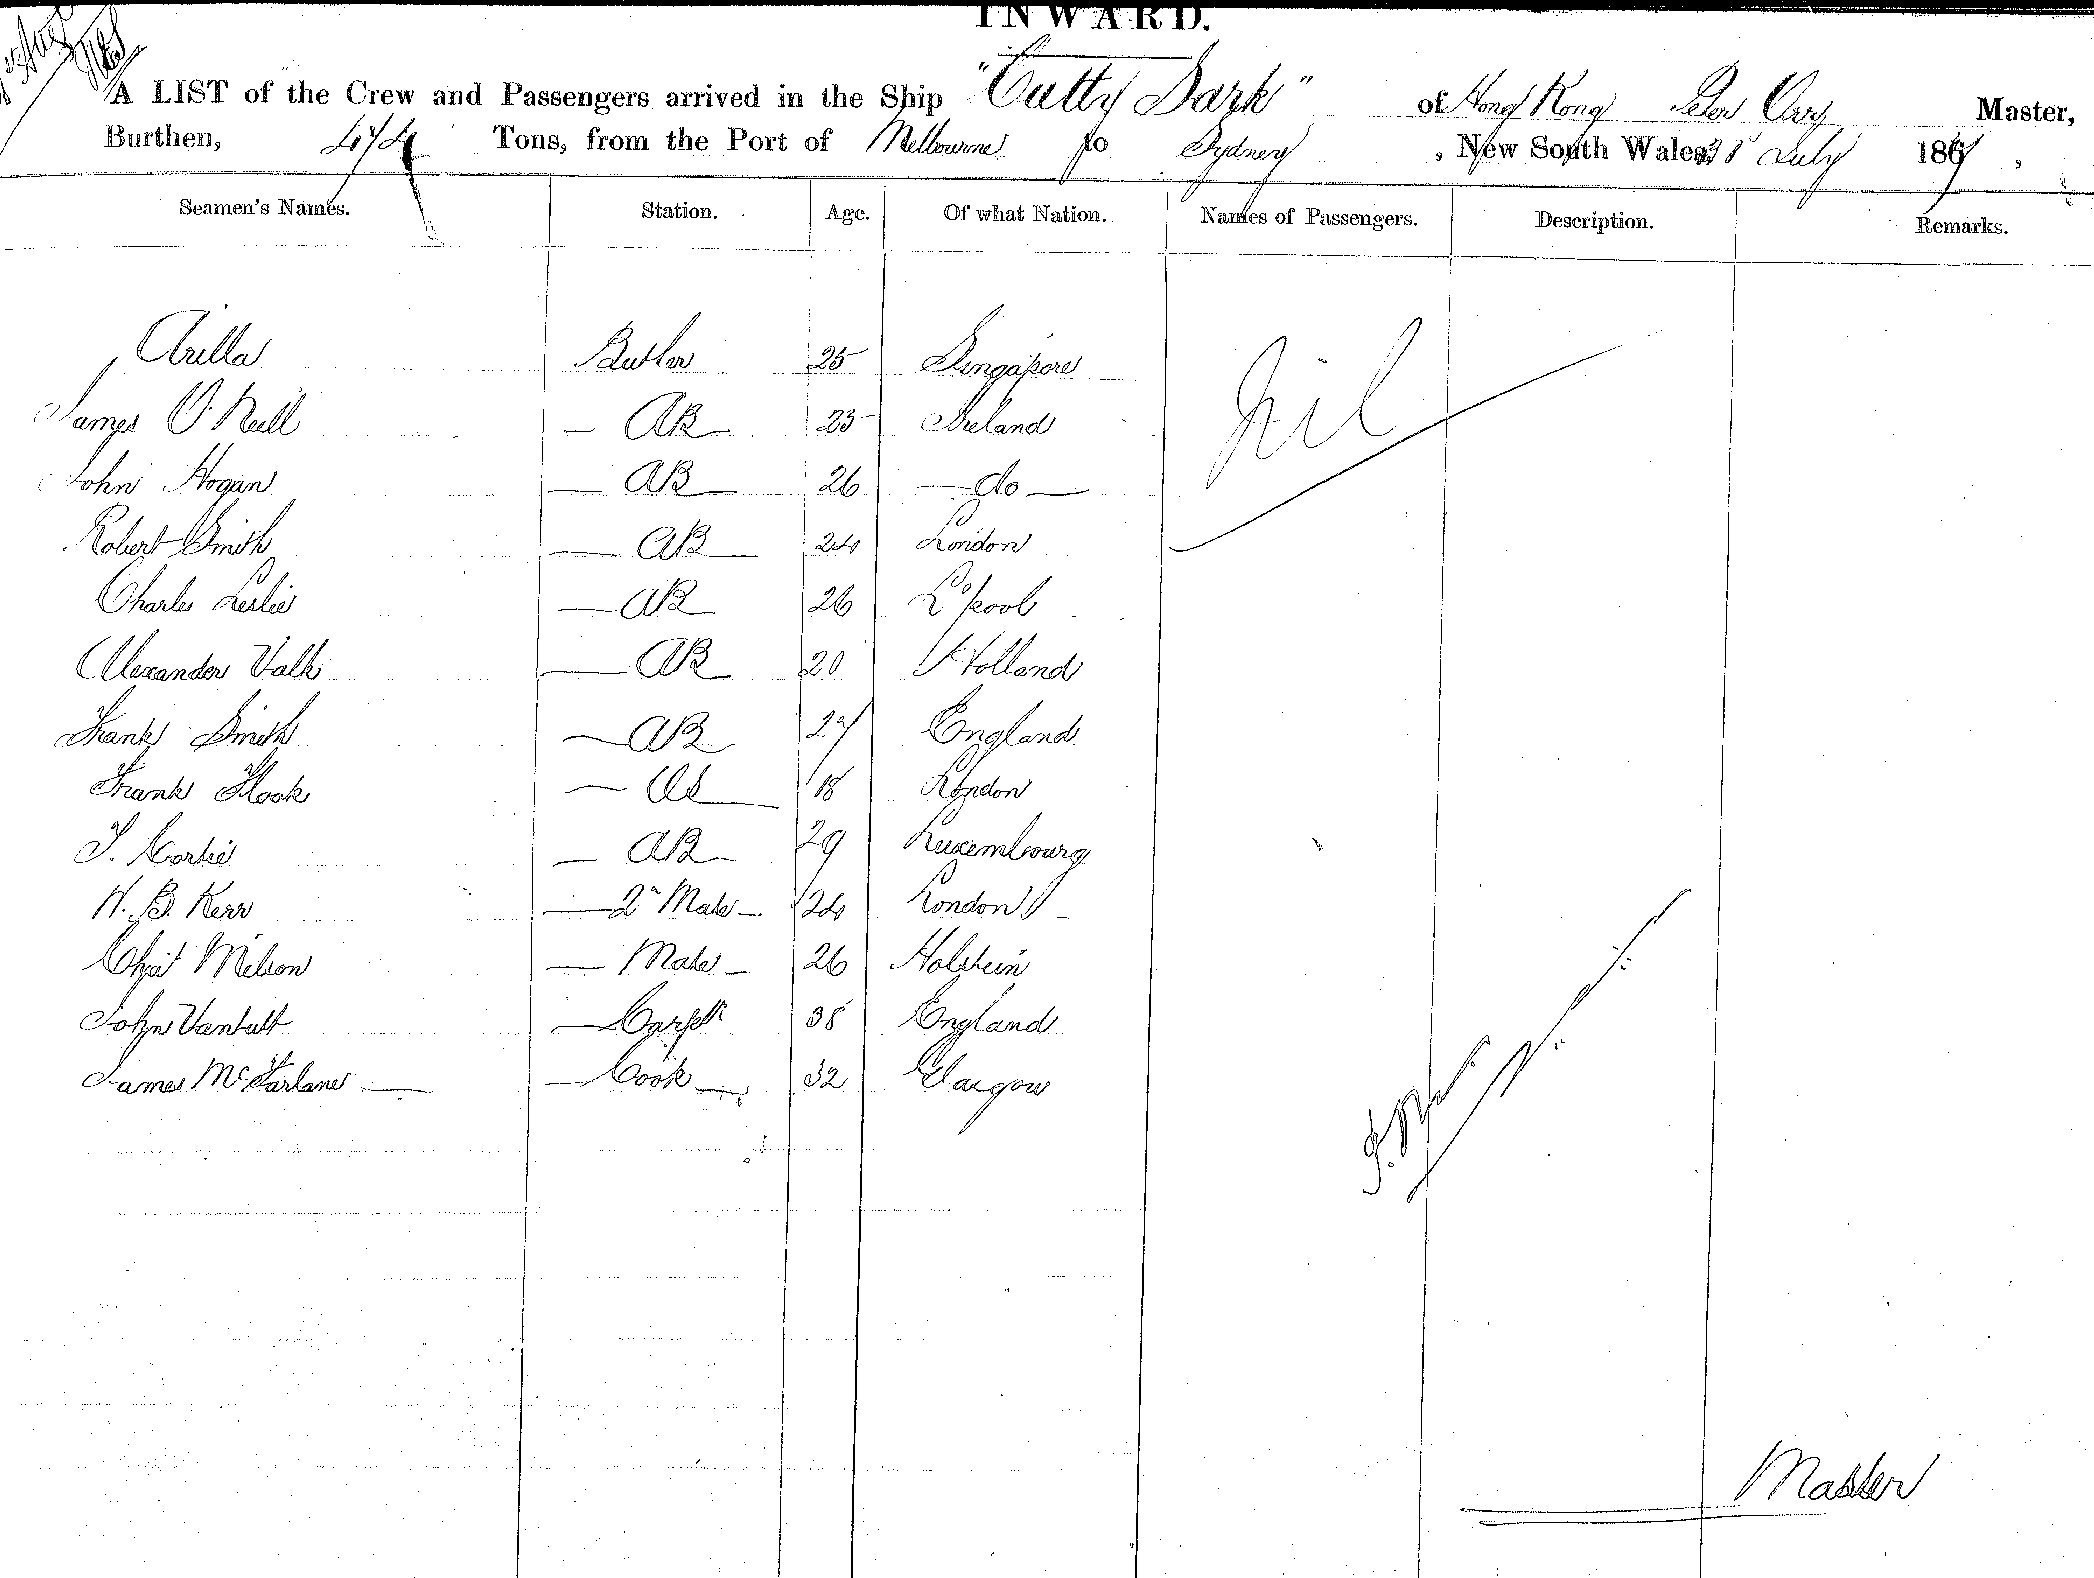 INWARD.
A LIST of the Crew and Passengers arrived in the Ship "Cutty Sark" of Hong Kong Master,
Burthen, 474 Tons, from the Port of Melbourne to Sydney, New South Wales July 186
Seamen's Names. Station. Age. Of what Nation. Names of Passengers. Description. Remarks.
Arilla Butler 25 Singapore Nil
James O'Neill — AB — 23 Ireland
John Hogan — AB — 26 — do —
Robert Smith — AB — 24 London
Charles Leslie — AB 26 L'pool
Alexander Valk — AB 20 Holland
Frank Smith — AB 27 England
Frank Hook — OS 18 London
AB — 29 Luxembourg
W. B. Kerr — 2n Mate — 24 London —
Mate — 26 Holstein
John — Carptr 38 England
James McFarlane — — Cook — 32 Glasgow
Master